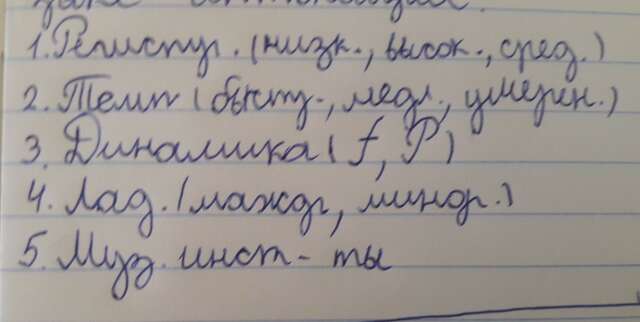 1. Регистр. (низк., высок., сред.)
2. Темп (быстр., медл., умерен.)
3. Динамика (f, P)
4. Лад. (мажор, минор.)
5. Муз. инст-ты